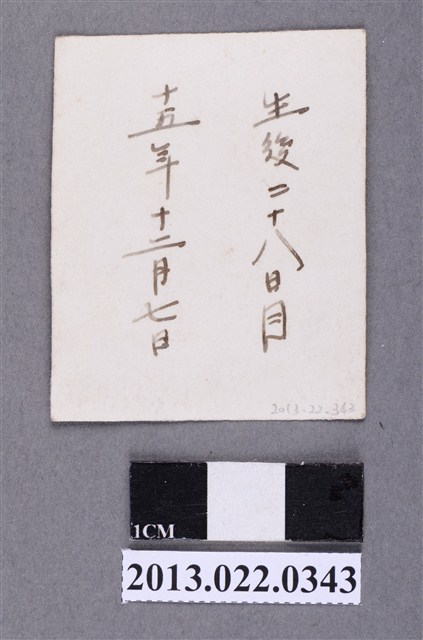 生後二十八日目
十五年十二月七日
2013-22-343
1CM
2013.022.0343